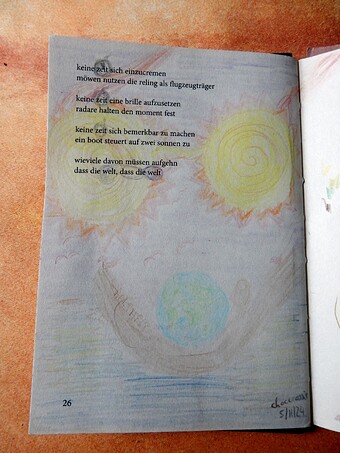 keine zeit sich einzucremen
möwen nutzen die reling als flugzeugträger
keine zeit eine brille aufzusetzen
radare halten den moment fest
keine zeit sich bemerkbar zu machen
ein boot steuert auf zwei sonnen zu
wieviele davon müssen aufgehn
dass die welt, dass die welt
26
5/11/24